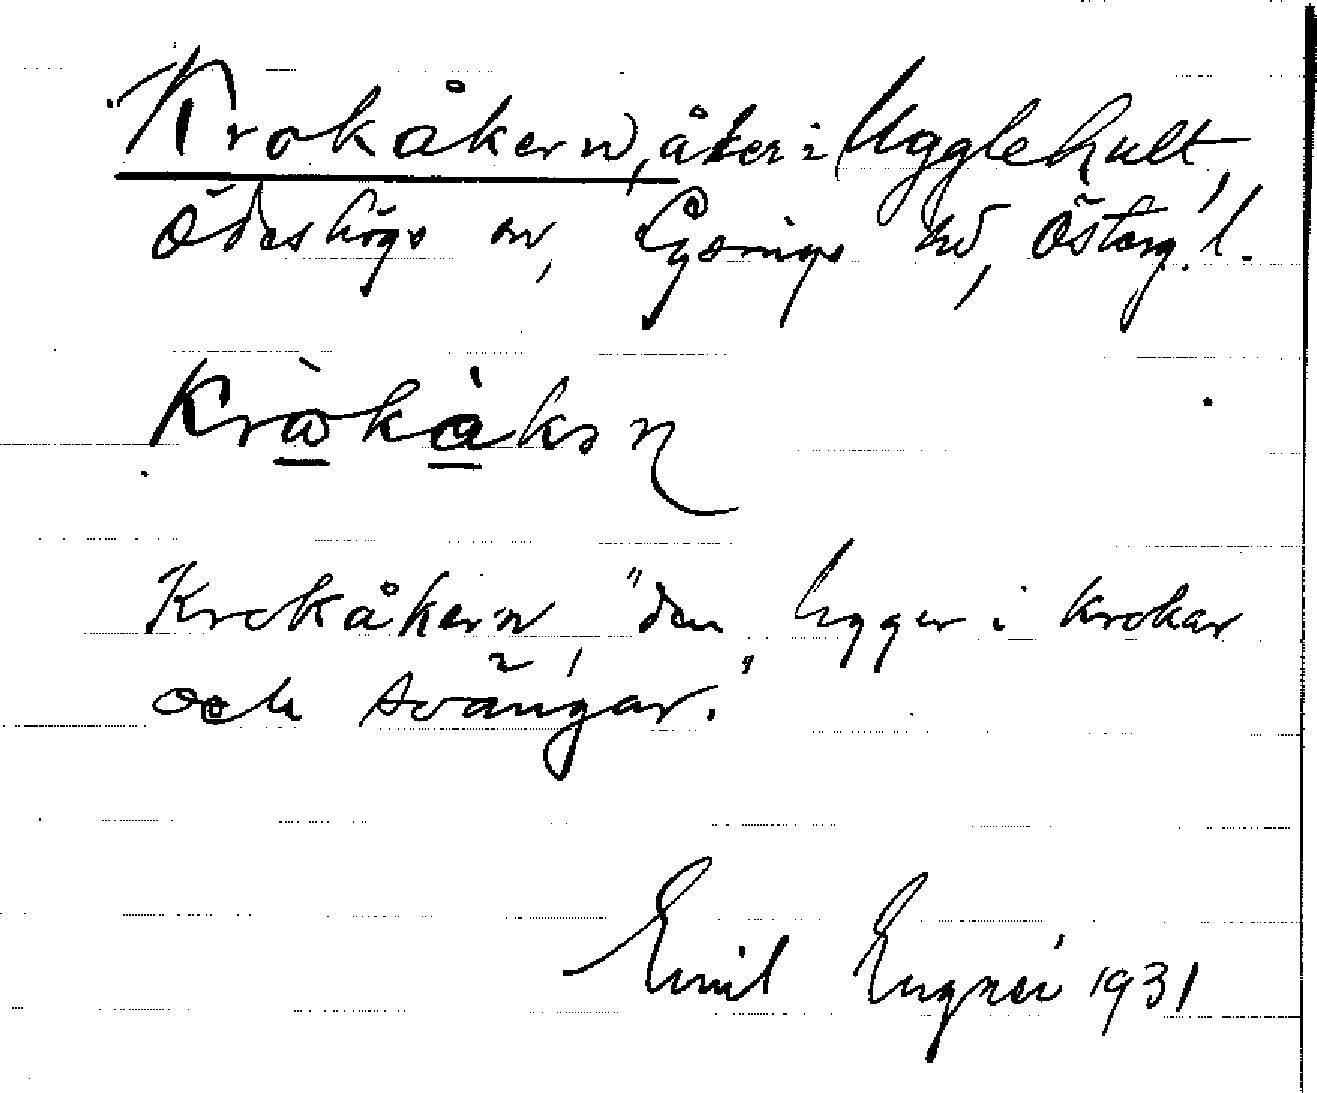 Krokåkern, åker i Ugglehult,
Ödeshögs sn, Lysings hd, Österg. l.
Kròkàkən
Krokåkern, "den ligger i krokar
och svängar."
Emil Engnér 1931